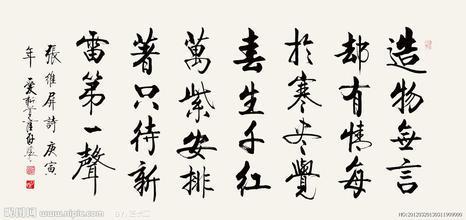 造物無言
却有情每
於寒盡覺
春生千紅
萬紫安排
著只待新
雷第一聲
張維屏詩庚寅
年
昵图网 www.nipic.com